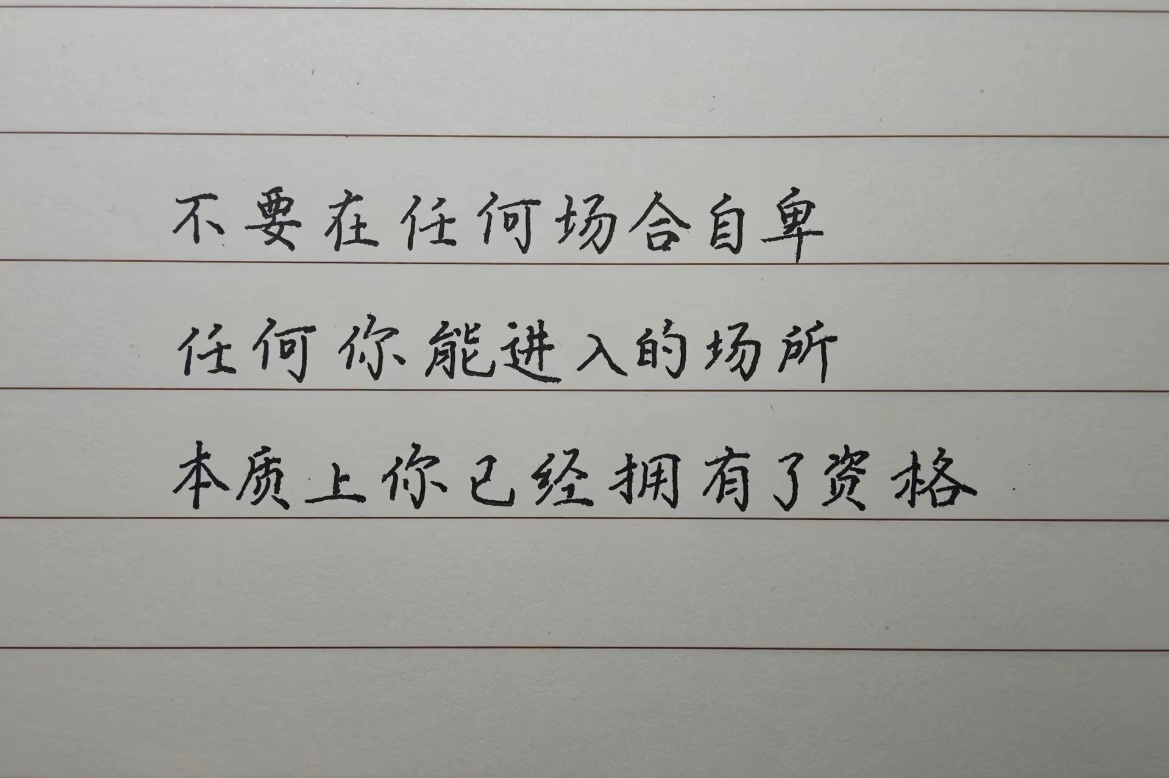 不要在任何场合自卑
任何你能进入的场所
本质上你已经拥有了资格